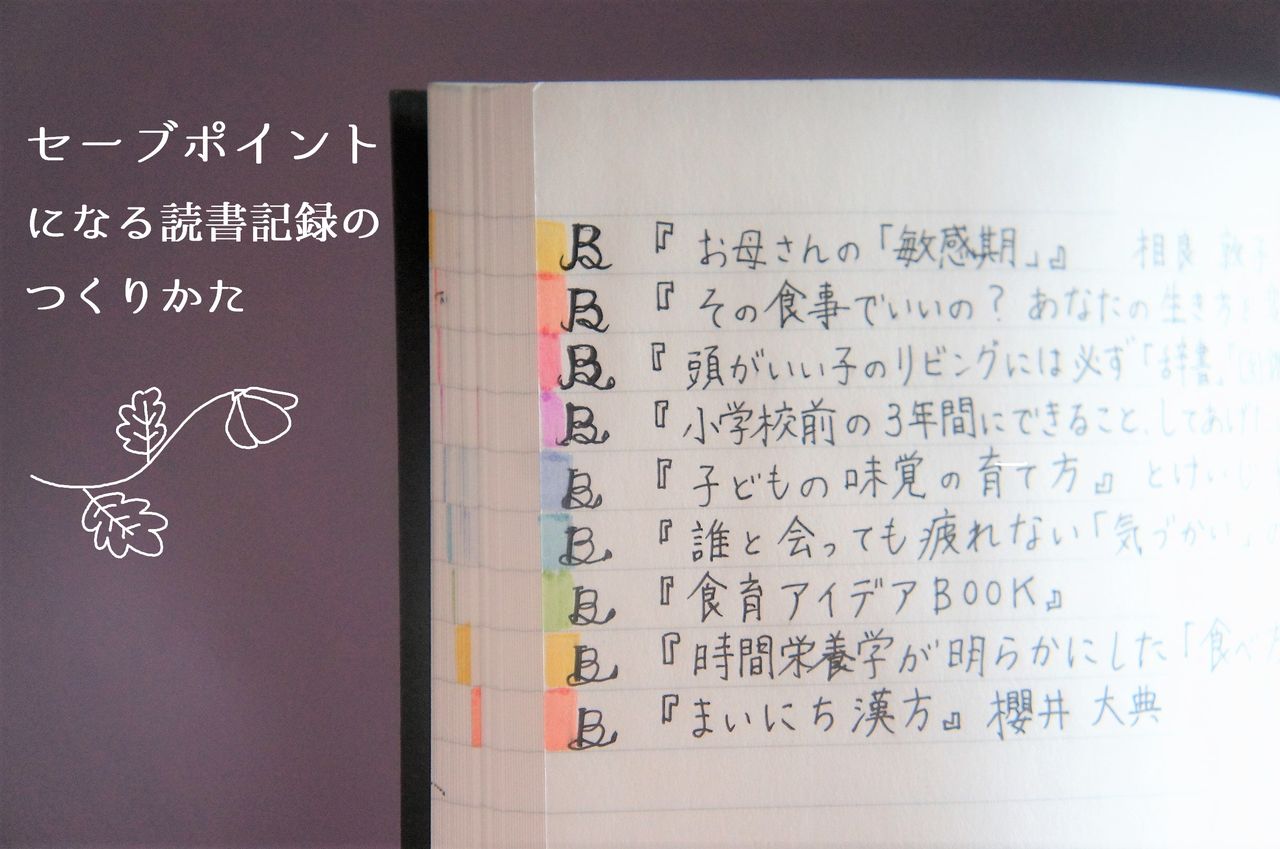 セーブポイント
になる読書記録の
つくりかた
B 『お母さんの「敏感期」』 相良 敦子
B 『その食事でいいの？ あなたの生き方と
B 『頭がいい子のリビングには必ず「辞書」
B 『小学校前の3年間にできること、してあげた
B 『子どもの味覚の育て方』 とけいじ
B 『誰と会っても疲れない「気づかい」の
B 『食育アイデアBOOK』
B 『時間栄養学が明らかにした「食べ方
B 『まいにち漢方』 櫻井 大典